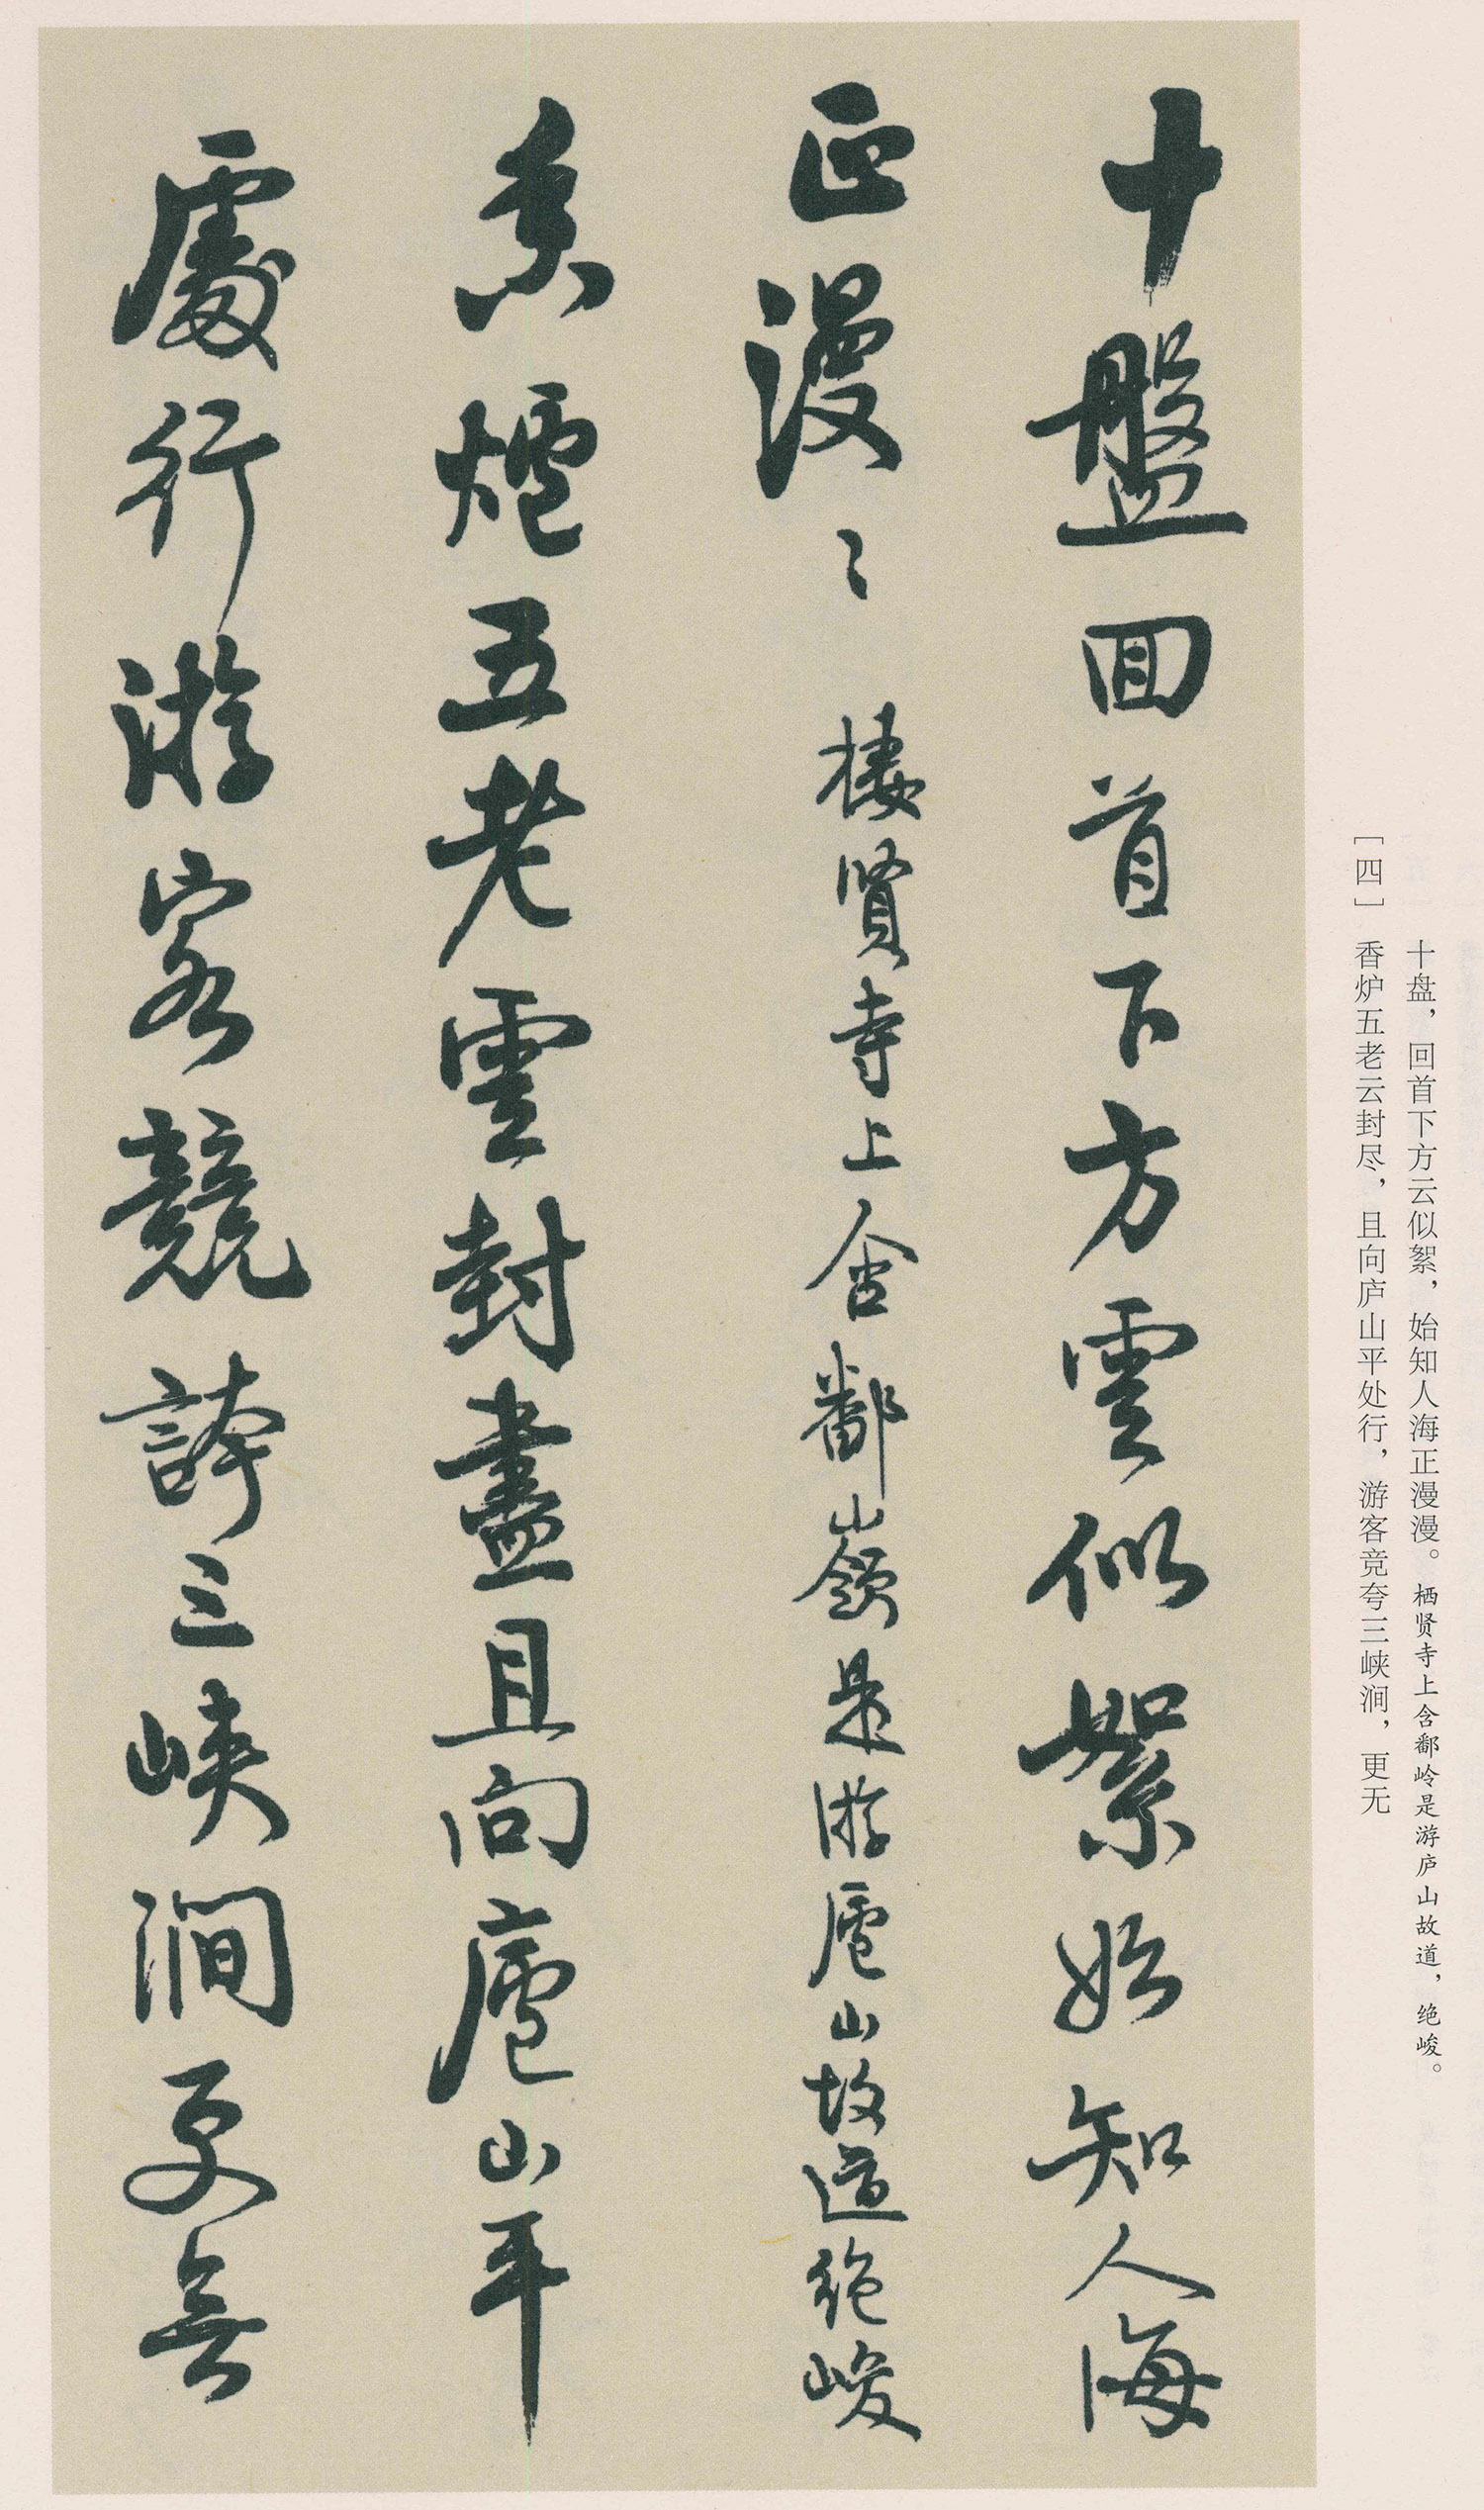 十盤回首下方雲似絮始知人海
正漫〻　棲賢寺上含鄱嶺是游廬山故道絶峻
香爐五老雲封盡且向廬山平
處行游客競誇三峽澗更無
十盘，回首下方云似絮，始知人海正漫漫。栖贤寺上含鄱岭是游庐山故道，绝峻。
［四］香炉五老云封尽，且向庐山平处行，游客竞夸三峡涧，更无